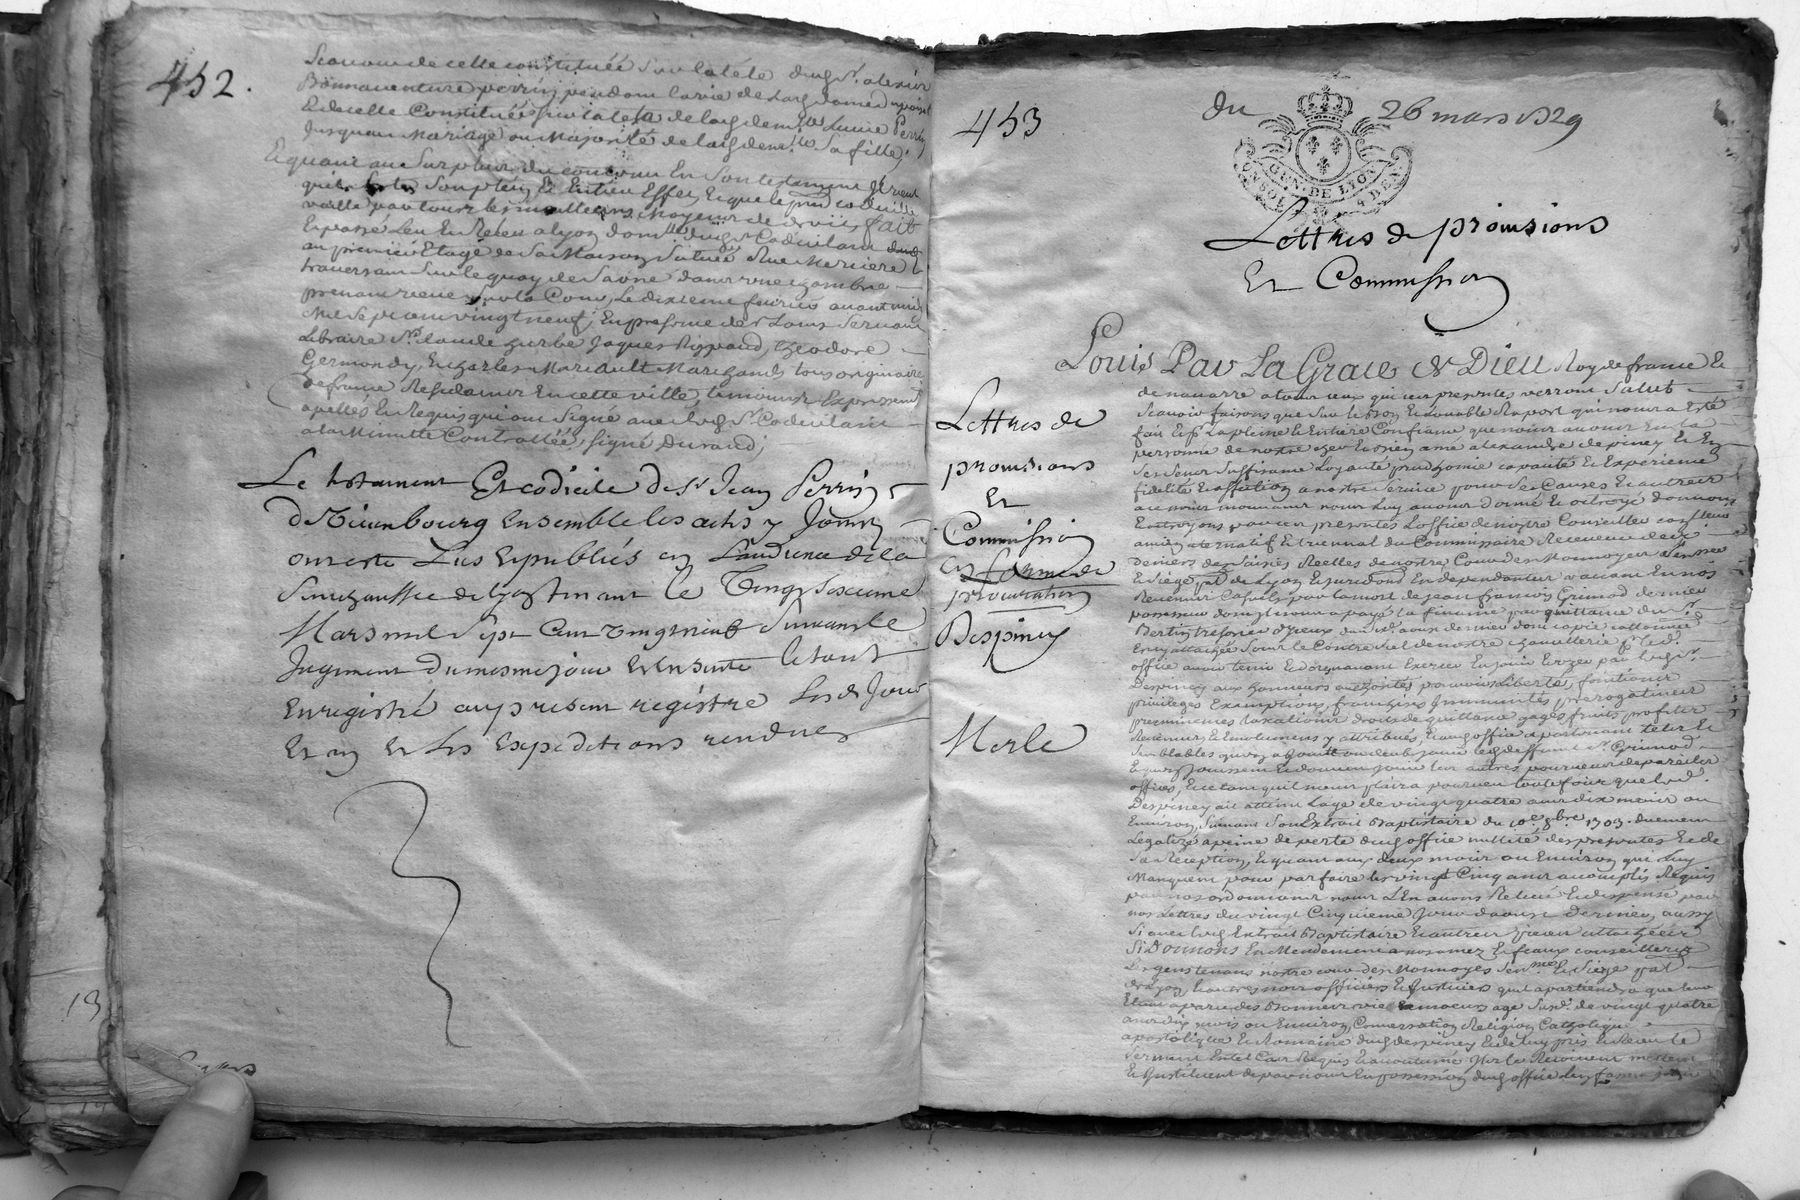 452.
Scavoir de celle constituée sur la tête dud. Sr. alexis
Bonnaventure perrin pendant la vie de lad. dame
Et de celle Constituée sur la teste de lad. demlle. Lucie Perrin
Jusqu'au Mariage ou Majorité de lad. demlle. sa fille.
Et quant au Surplus du contenu En son testament Il veut
qu'il sorte Son plein Et Entier Effet Et que le pnt. codicille
vaille par tous les meilleurs Moyens de droit fait
Et passé Leu Et Releu a Lyon domlle. dud. Sr. Codicilant
au premier Etage de sa Maison Scituée Rue Merciere
traversant Sur le quay de Saone dans une chambre
prenant veue sur la Cour, Le dixieme fevrier avant midy
Mil Sept cent vingt neuf, En presence de Sr. Louis Servant
Libraire Sr. Claude Jaques Rigaud, theodore
Germondy, Et Charles Mariault Marchands tous originaires
de france Residants En cette ville, temoins Expressement
apellés Et Requis qui ont Signé avec led. Sr. Codicilant
a la Minutte Controllée, signé Durand;
Le testament Et codicile de Sr. Jean Perrin
de Vieuxbourg Ensemble les actes y Joints
ont esté Lus et publiés en L'audience de la
Senechaussée de Lyon tenant le Vingt Sixieme
Mars mil Sept Cent Vingt neuf Suivant le
Jugement du mesme jour et Ensuite le tout
Enregistré au present registre Les d. Jour
Et an et Les Expeditions rendues
13
453
du 26 mars 1729
GEN. DE LYON
Lettres de provisions
Et Commission
Lettres de
provisions
Et
Commission
en forme de
procuration
Despiney
Merle
Louis Par La Grace de Dieu Roy de france Et
de navarre a tous ceux qui ces presentes verront Salut
Scavoir faisons que Sur le bon Et Louable Raport qui nous a Eté
fait Et pr. La pleine Et Entiere Confiance que nous avons En la
personne de nostre cher Et bien amé alexandre despiney Et En
Ses Sens Suffisance Loyauté prudhomie capacité Et Experience
fidelité Et affection a nostre Service pour Ses Causes Et autres
a ce nous mouvant nous Luy avons donné Et octroyé donnons
Et octroyons par ces presentes L'office de nostre Conseiller
ancien alternatif Et triennal du Commissaire Receveur des
deniers des Saisies Reelles de nostre Cour des Monnoyes Senechaussée
Et Siege pal. de Lyon
Revenus Casuels par la mort de Jean francois Grimod dernier
possesseur dont Il nous a payé la finance par quittance du Sr.
Bertin tresorier d'Iceux
Et cy attachée Sous le Contre Scel de nostre chancellerie pr. led.
office avoir tenir Et doresnavant Exercer En jouir Et user par led. Sr.
Despiney aux honneurs authorités pouvoirs Libertés, fonctions
privileges Exemptions, franchises Immunités prerogatives
preeminences taxations droits de quittance gages fruits profits
Revenus, Et Emolumens y attribués, Et aud. office apartenant tels Et
Semblables qu'en a Jouit ou deub jouir led. deffunt Sr. Grimod
Et qu'en Jouissent Et doivent jouir les autres pourveus de pareils
offices, Et ce tant qu'il nous plaira pourveu toutefois que led.
Despiney ait atteint L'age de vingt quatre ans dix mois ou
Environ, Suivant Son Extrait Baptistaire du 10e. 8bre. 1703. duement
Legalizé a peine de perte dud. office nullité des presentes Et de
Sa Reception, Et quant aux deux mois ou Environ qui Luy
Manquent pour parfaire les vingt Cinq ans accomplis Requis
par nos ordonnances nous L'En avons Relevé Et dispensé par
nos Lettres du vingt Cinquieme Jour d'aoust dernier, aussy
Si avec led. Extrait Baptistaire Et autres pieces attachées
Si Donnons En Mendement a nos amez Et feaux conseillers Les
gens tenans nostre cour des Monnoyes Senchée. Et Siege pal.
de Lyon Et autres nos officiers Et Justiciers qu'il apartiendra que leur
Etant aparu des Bonnes vie Et moeurs age Susd. de vingt quatre
ans dix mois ou Environ, Conversation Religion Catholique
apostolique Et Romaine dud. despiney Et de luy pris Et Receu le
Serment En tel Cas Requis Et acoutumé Ils Le Recoivent mettent
Et Instituent de par nous En possession dud. office